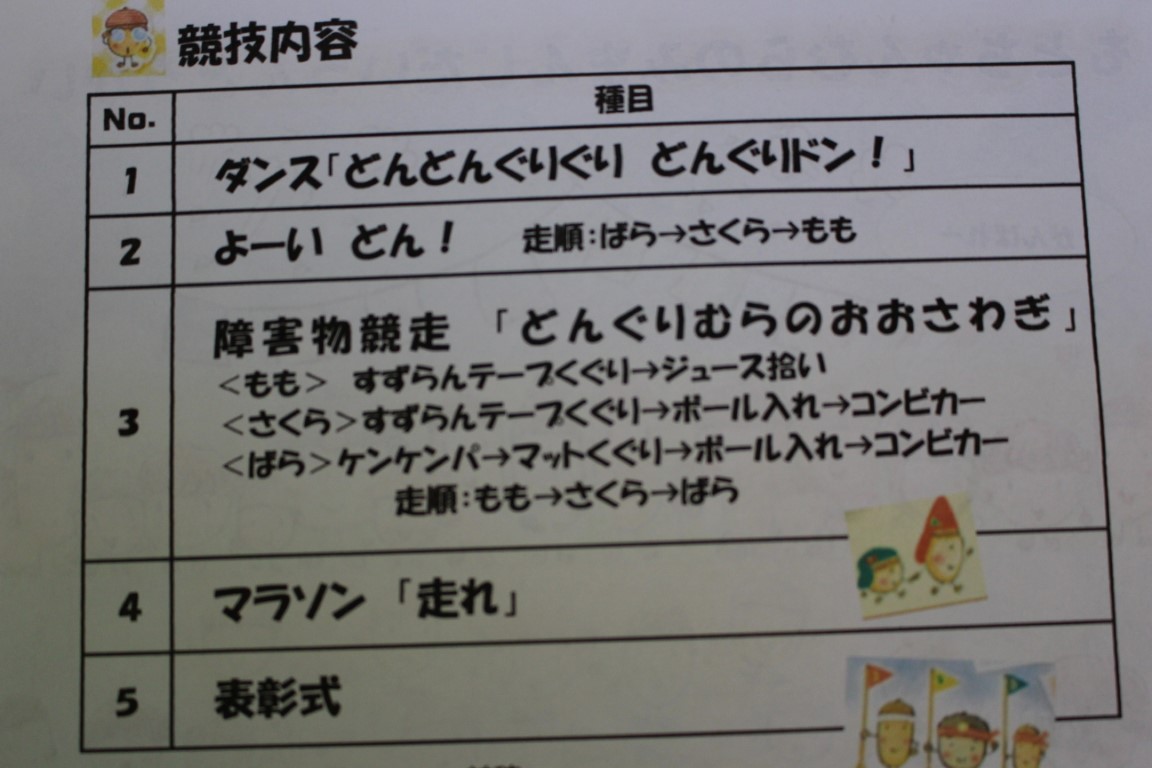 競技内容
No. 種目
1 ダンス「どんどんぐりぐり どんぐりドン！」
2 よーい どん！ 走順：ばら→さくら→もも
3 障害物競走 「どんぐりむらのおおさわぎ」
＜もも＞ すずらんテープくぐり→ジュース拾い
＜さくら＞すずらんテープくぐり→ボール入れ→コンビカー
＜ばら＞ケンケンパ→マットくぐり→ボール入れ→コンビカー
走順：もも→さくら→ばら
4 マラソン 「走れ」
5 表彰式